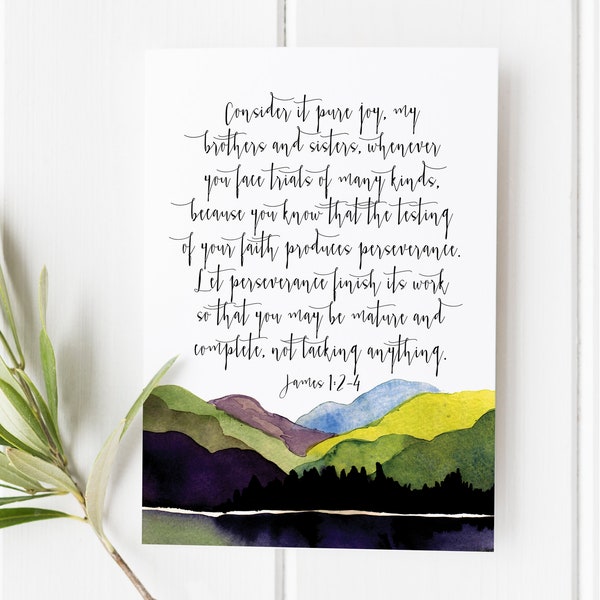 Consider it pure joy, my
brothers and sisters, whenever
you face trials of many kinds,
because you know that the testing
of your faith produces perseverance.
Let perseverance finish its work
so that you may be mature and
complete, not lacking anything.
James 1:2-4